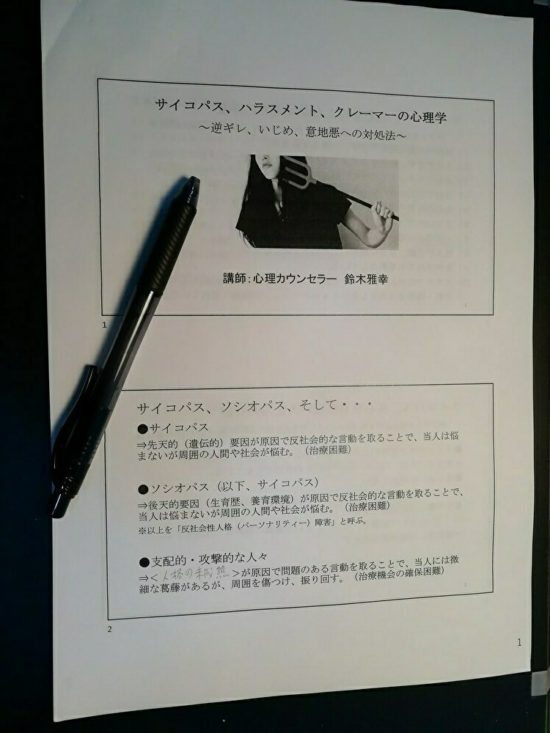 サイコパス、ハラスメント、クレーマーの心理学
～逆ギレ、いじめ、意地悪への対処法～
講師：心理カウンセラー　鈴木雅幸
1
サイコパス、ソシオパス、そして・・・
●サイコパス
⇒先天的（遺伝的）要因が原因で反社会的な言動を取ることで、当人は悩
まないが周囲の人間や社会が悩む。（治療困難）
●ソシオパス（以下、サイコパス）
⇒後天的要因（生育歴、養育環境）が原因で反社会的な言動を取ることで、
当人は悩まないが周囲の人間や社会が悩む。（治療困難）
※以上を「反社会性人格（パーソナリティー）障害」と呼ぶ。
●支配的・攻撃的な人々
⇒＜人格の未熟＞が原因で問題のある言動を取ることで、当人には微
細な葛藤があるが、周囲を傷つけ、振り回す。（治療機会の確保困難）
2
1